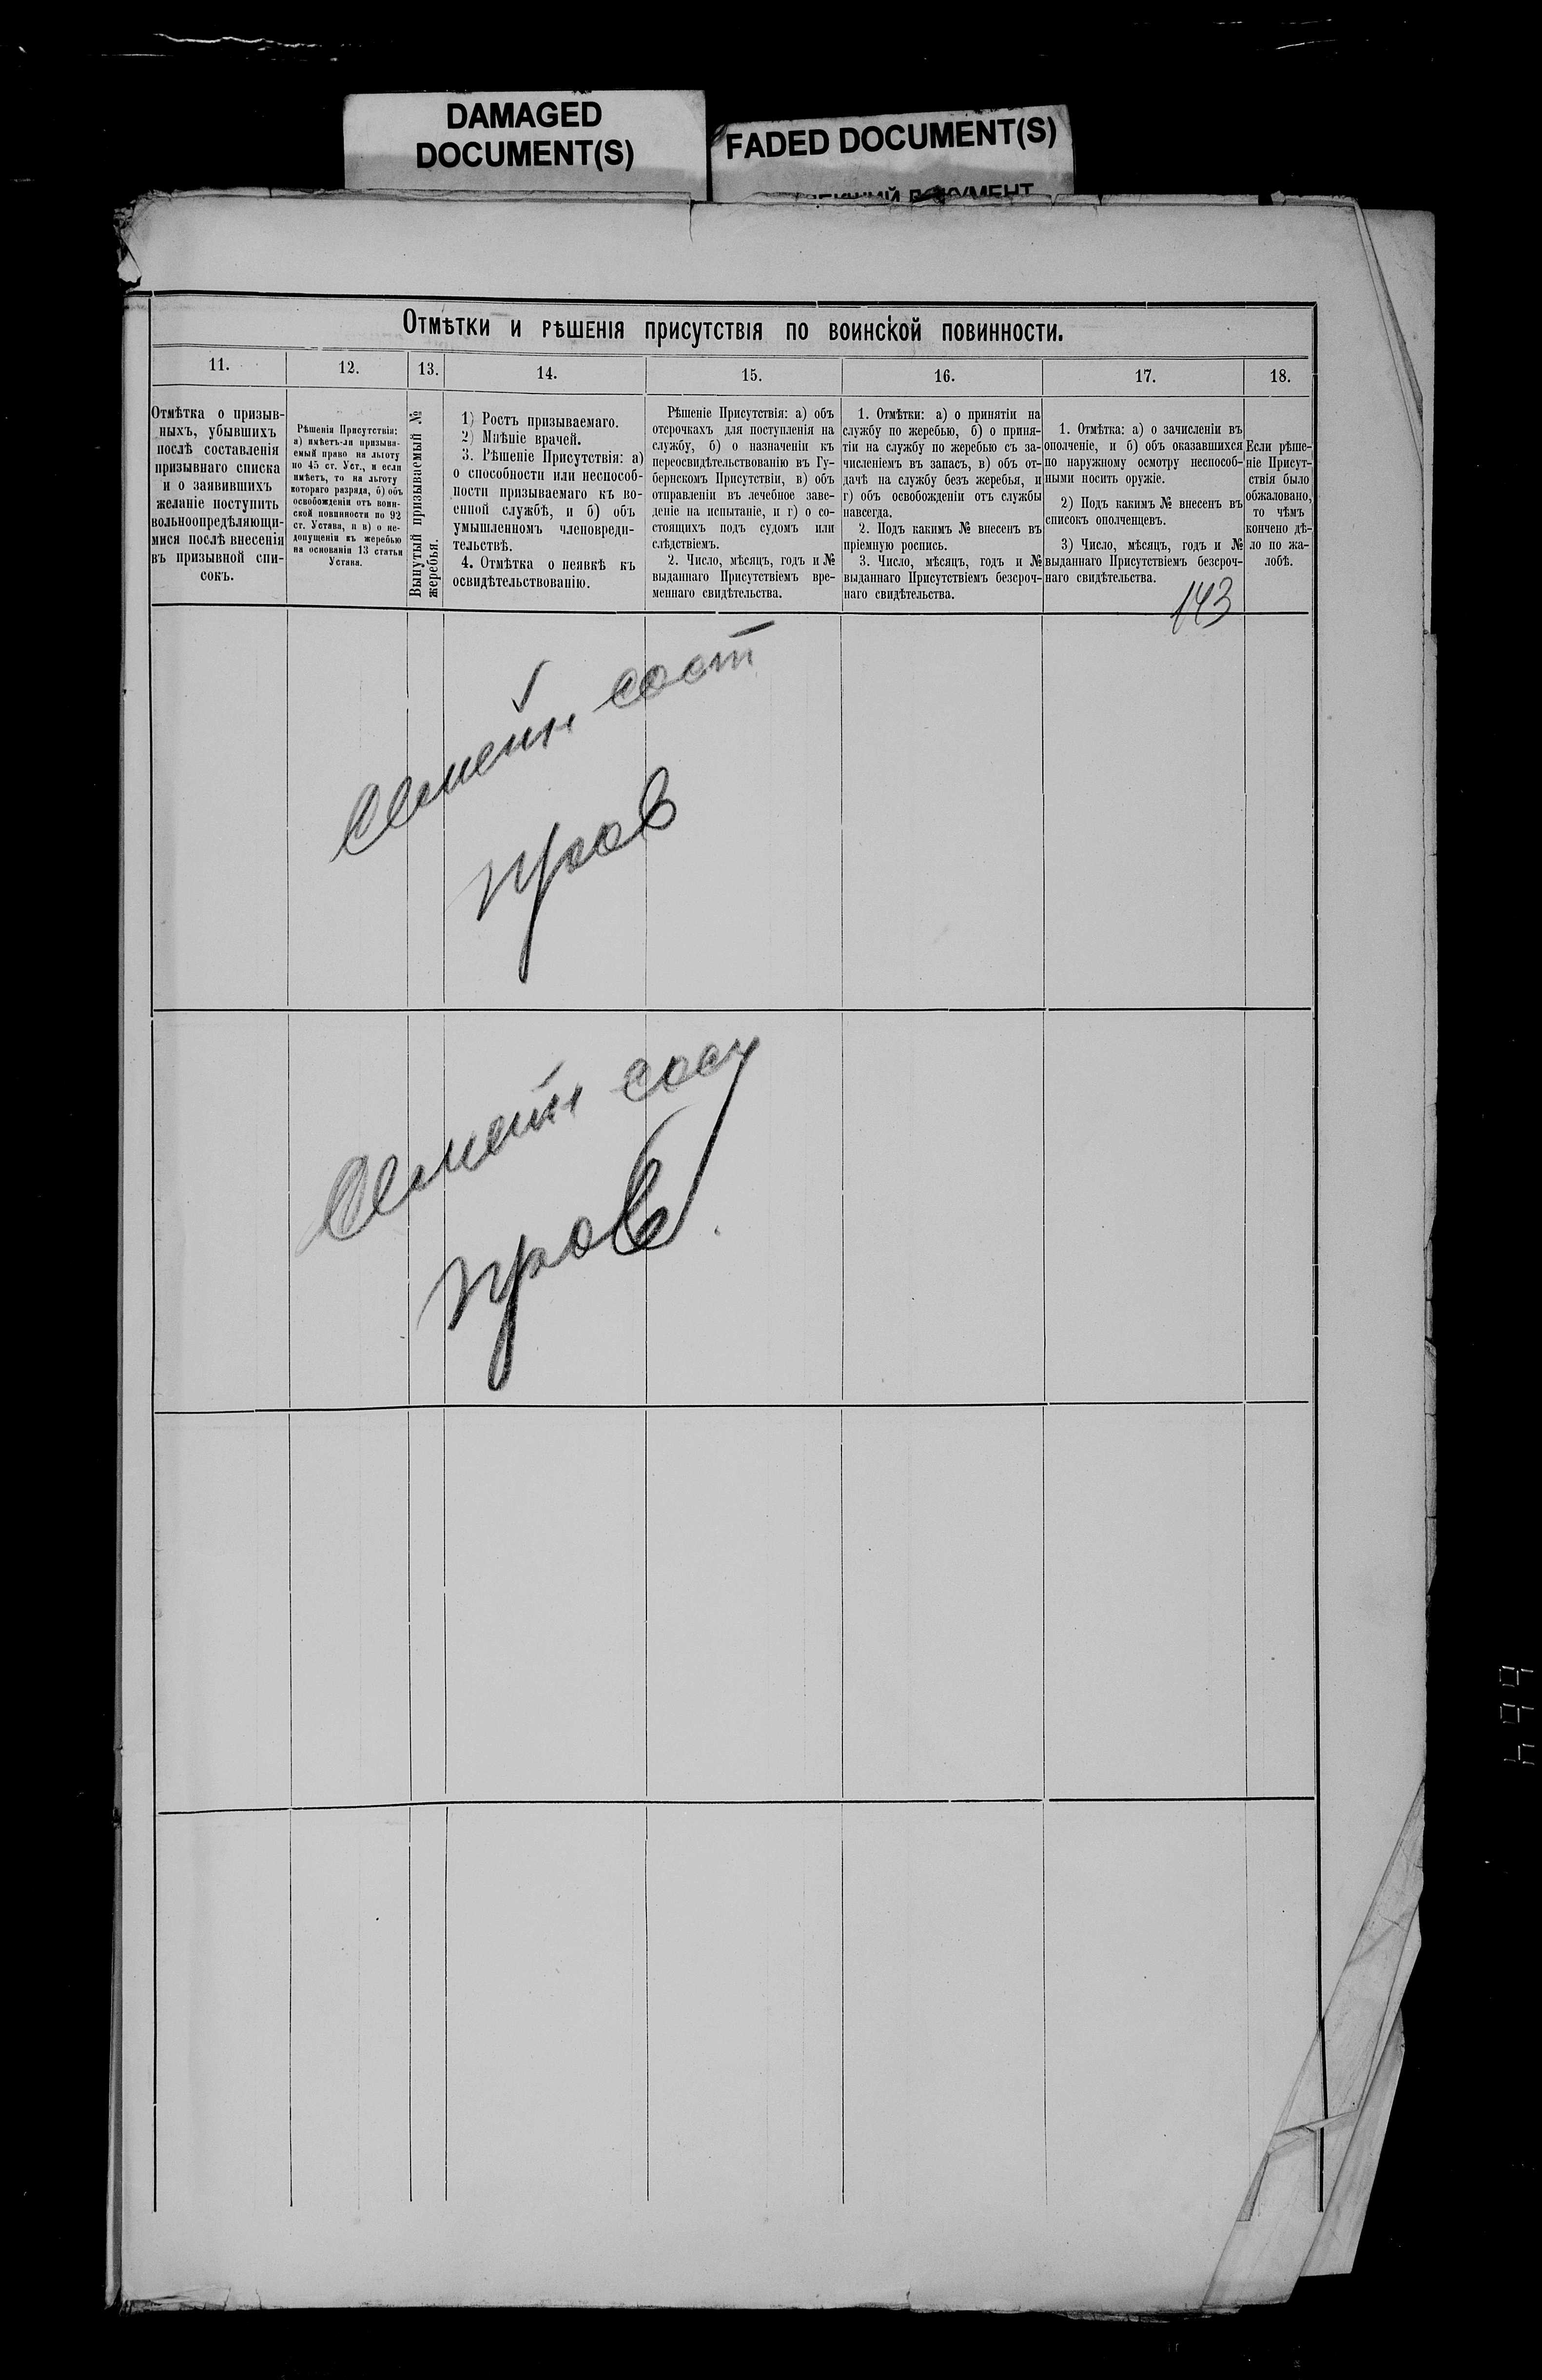 DAMAGED
DOCUMENT(S)
FADED DOCUMENT(S)
ДОКУМЕНТ
Отмѣтки и рѣшенія присутствія по воинской повинности.
11.
12.
13.
14.
15.
16.
17.
18.
Отмѣтка о призыв-
ныхъ, убывшихъ
послѣ составленія
призывнаго списка
и о заявившихъ
желаніе поступить
вольноопредѣляющи-
мися послѣ внесенія
въ призывной спи-
сокъ.
Рѣшенія Присутствія:
а) имѣетъ-ли призыва-
емый право на льготу
по 45 ст. Уст., и если
имѣетъ, то на льготу
котораго разряда, б) объ
освобожденіи отъ воин-
ской повинности по 92
ст. Устава, и в) о не-
допущеніи къ жеребью
на основаніи 13 статьи
Устава.
Вынутый призываемый №
жеребья.
1) Ростъ призываемаго.
2) Мнѣніе врачей.
3. Рѣшеніе Присутствія: а)
о способности или неспособ-
ности призываемаго къ во-
енной службѣ, и б) объ
умышленномъ членовреди-
тельствѣ.
4. Отмѣтка о неявкѣ къ
освидѣтельствованію.
Рѣшеніе Присутствія: а) объ
отсрочкахъ для поступленія на
службу, б) о назначеніи къ
переосвидѣтельствованію въ Гу-
бернскомъ Присутствіи, в) объ
отправленіи въ лечебное заве-
деніе на испытаніе, и г) о со-
стоящихъ подъ судомъ или
слѣдствіемъ.
2. Число, мѣсяцъ, годъ и №
выданнаго Присутствіемъ вре-
меннаго свидѣтельства.
1. Отмѣтки: а) о принятіи на
службу по жеребью, б) о приня-
тіи на службу по жеребью съ за-
численіемъ въ запасъ, в) объ от-
дачѣ на службу безъ жеребья, и
г) объ освобожденіи отъ службы
навсегда.
2. Подъ какимъ № внесенъ въ
пріемную роспись.
3. Число, мѣсяцъ, годъ и №
выданнаго Присутствіемъ безсроч-
наго свидѣтельства.
1. Отмѣтка: а) о зачисленіи въ
ополченіе, и б) объ оказавшихся
по наружному осмотру неспособ-
ными носить оружіе.
2) Подъ какимъ № внесенъ въ
списокъ ополченцевъ.
3) Число, мѣсяцъ, годъ и №
выданнаго Присутствіемъ безсроч-
наго свидѣтельства.
Если рѣше-
ніе Присут-
ствія было
обжаловано,
то чѣмъ
кончено дѣ-
ло по жа-
лобѣ.
143
Семейн сост
пров
Семейн сост
пров
664